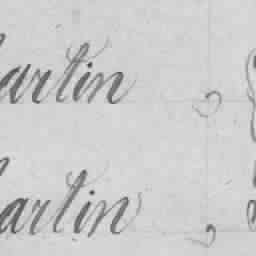 Martin ,
Martin ,